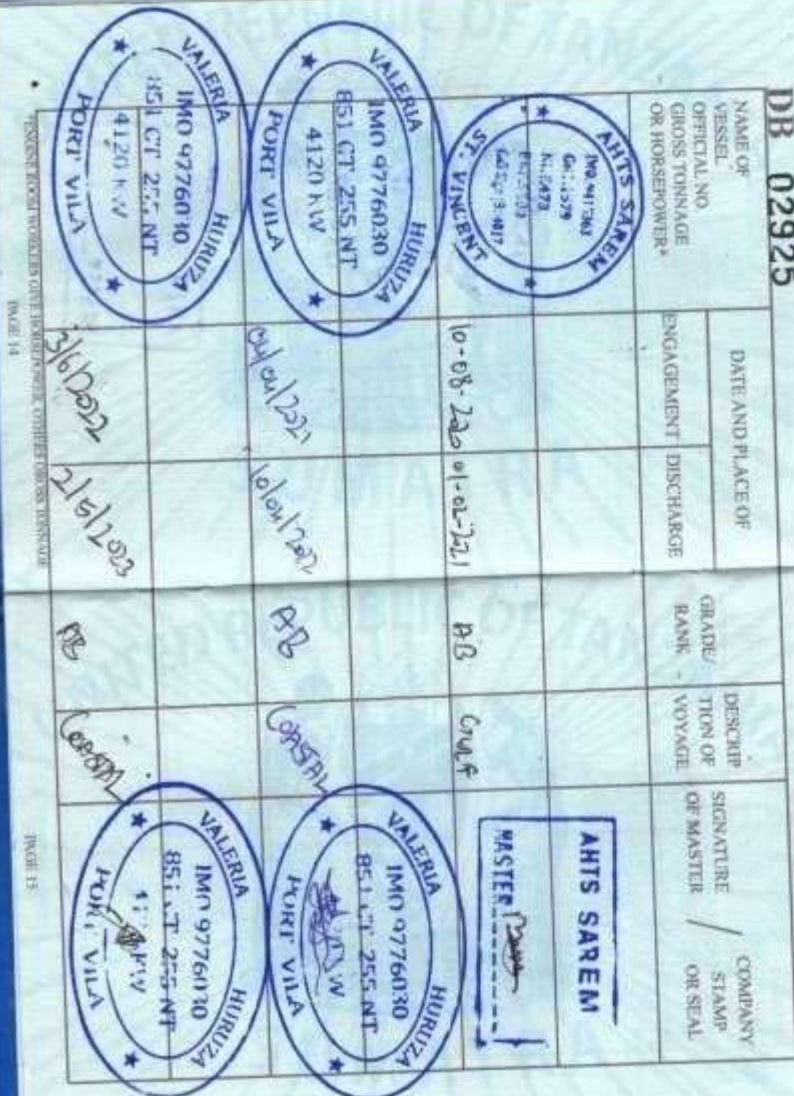 DB 02925
NAME OF
VESSEL
OFFICIAL NO
GROSS TONNAGE
OR HORSEPOWER*
DATE AND PLACE OF
ENGAGEMENT
DISCHARGE
GRADE/
RANK
DESCRIP
TION OF
VOYAGE
SIGNATURE
OF MASTER
/
COMPANY
STAMP
OR SEAL
AHTS SAREM
ST. VINCENT
10-08-2020
01-02-2021
AB
GULF
AHTS SAREM
MASTER
VALERIA HURUZA
IMO 9776030
851 GT 255 NT
4120 KW
PORT VILA
AB
COASTAL
VALERIA HURUZA
IMO 9776030
851 GT 255 NT
PORT VILA
VALERIA HURUZA
IMO 9776030
851 GT 255 NT
4120 KW
PORT VILA
3/6/2022
2/5/2023
AB
COASTAL
VALERIA HURUZA
IMO 9776030
255 NT
PORT VILA
*ENGINE ROOM WORKERS GIVE HORSEPOWER, OTHERS GROSS TONNAGE
PAGE 14
PAGE 15